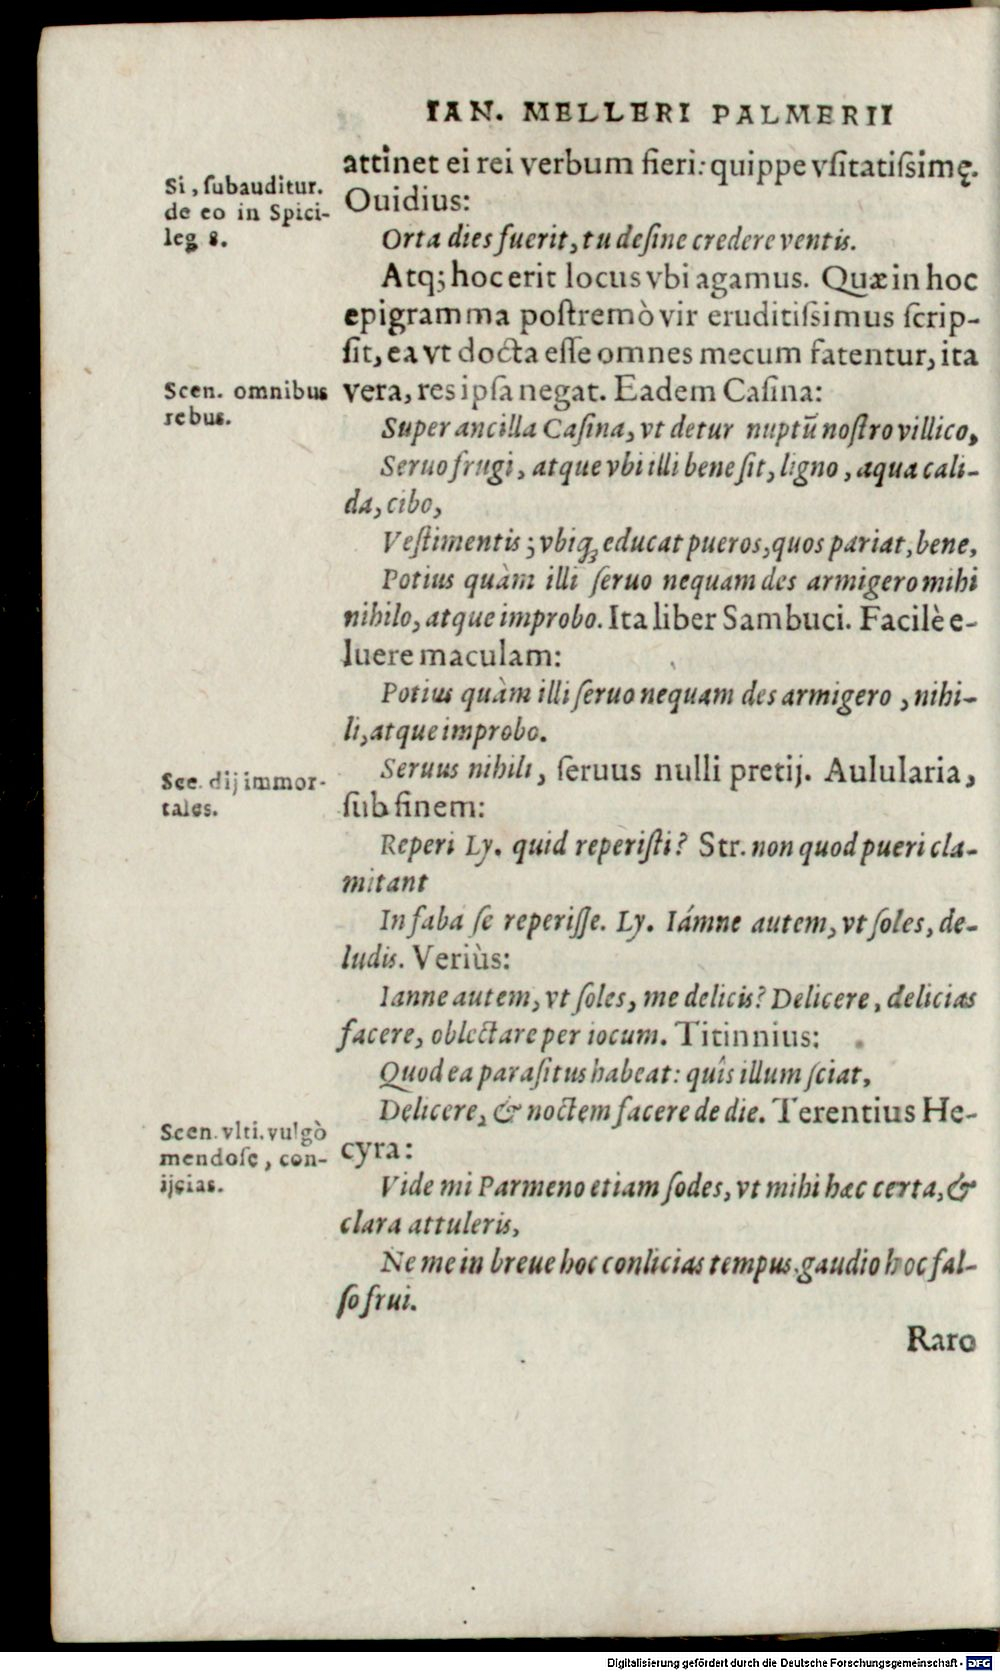 IAN. MELLERI PALMERII
attinet ei rei verbum fieri: quippe vſitatiſsimę.
Si, ſubauditur.
de eo in Spici-
leg 8.
Ouidius:
Orta dies fuerit, tu deſine credere ventis.
Atq; hoc erit locus vbi agamus. Quæ in hoc
epigramma poſtremò vir eruditiſsimus ſcrip-
ſit, ea vt docta eſſe omnes mecum fatentur, ita
Scen. omnibus
rebus.
vera, res ipſa negat. Eadem Caſina:
Super ancilla Caſina, vt detur nuptū noſtro villico,
Seruo frugi, atque vbi illi bene ſit, ligno, aqua cali-
da, cibo,
Veſtimentis; vbiq; educat pueros, quos pariat, bene,
Potius quàm illi ſeruo nequam des armigero mihi
nihilo, atque improbo. Ita liber Sambuci. Facilè e-
luere maculam:
Potius quàm illi ſeruo nequam des armigero, nihi-
li, atque improbo.
Sce. dij immor-
tales.
Seruus nihili, ſeruus nulli pretij. Aulularia,
ſub finem:
Reperi Ly. quid reperiſti? Str. non quod pueri cla-
mitant
In faba ſe reperiſſe. Ly. Iámne autem, vt ſoles, de-
ludis. Veriùs:
Ianne autem, vt ſoles, me delicis? Delicere, delicias
facere, oblectare per iocum. Titinnius:
Quod ea paraſitus habeat: quîs illum ſciat,
Delicere, & noctem facere de die. Terentius He-
Scen. vlti. vulgò
mendoſe, con-
ijcias.
cyra:
Vide mi Parmeno etiam ſodes, vt mihi hæc certa, &
clara attuleris,
Ne me in breue hoc conlicias tempus, gaudio hoc fal-
ſo frui.
Raro
Digitalisierung gefördert durch die Deutsche Forschungsgemeinschaft - DFG